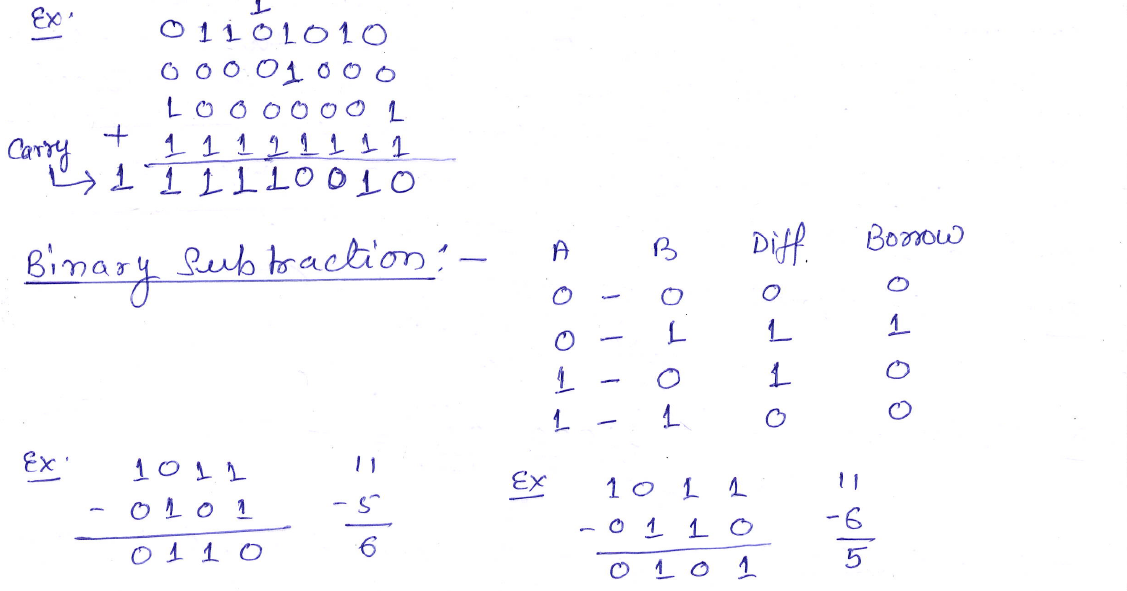 1
Ex. 01101010
00001000
10000001
+ 11111111
Carry ↳ 1 11110010
Binary Subtraction:-
A B Diff. Borrow
0 - 0 0 0
0 - 1 1 1
1 - 0 1 0
1 - 1 0 0
Ex. 1011 11
- 0101 -5
0110 6
Ex 1011 11
- 0110 -6
0101 5